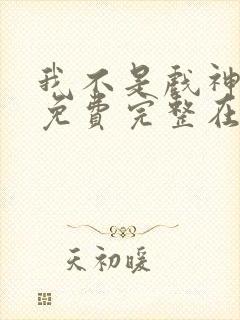 我不是戏神
免费完整在
天初暖